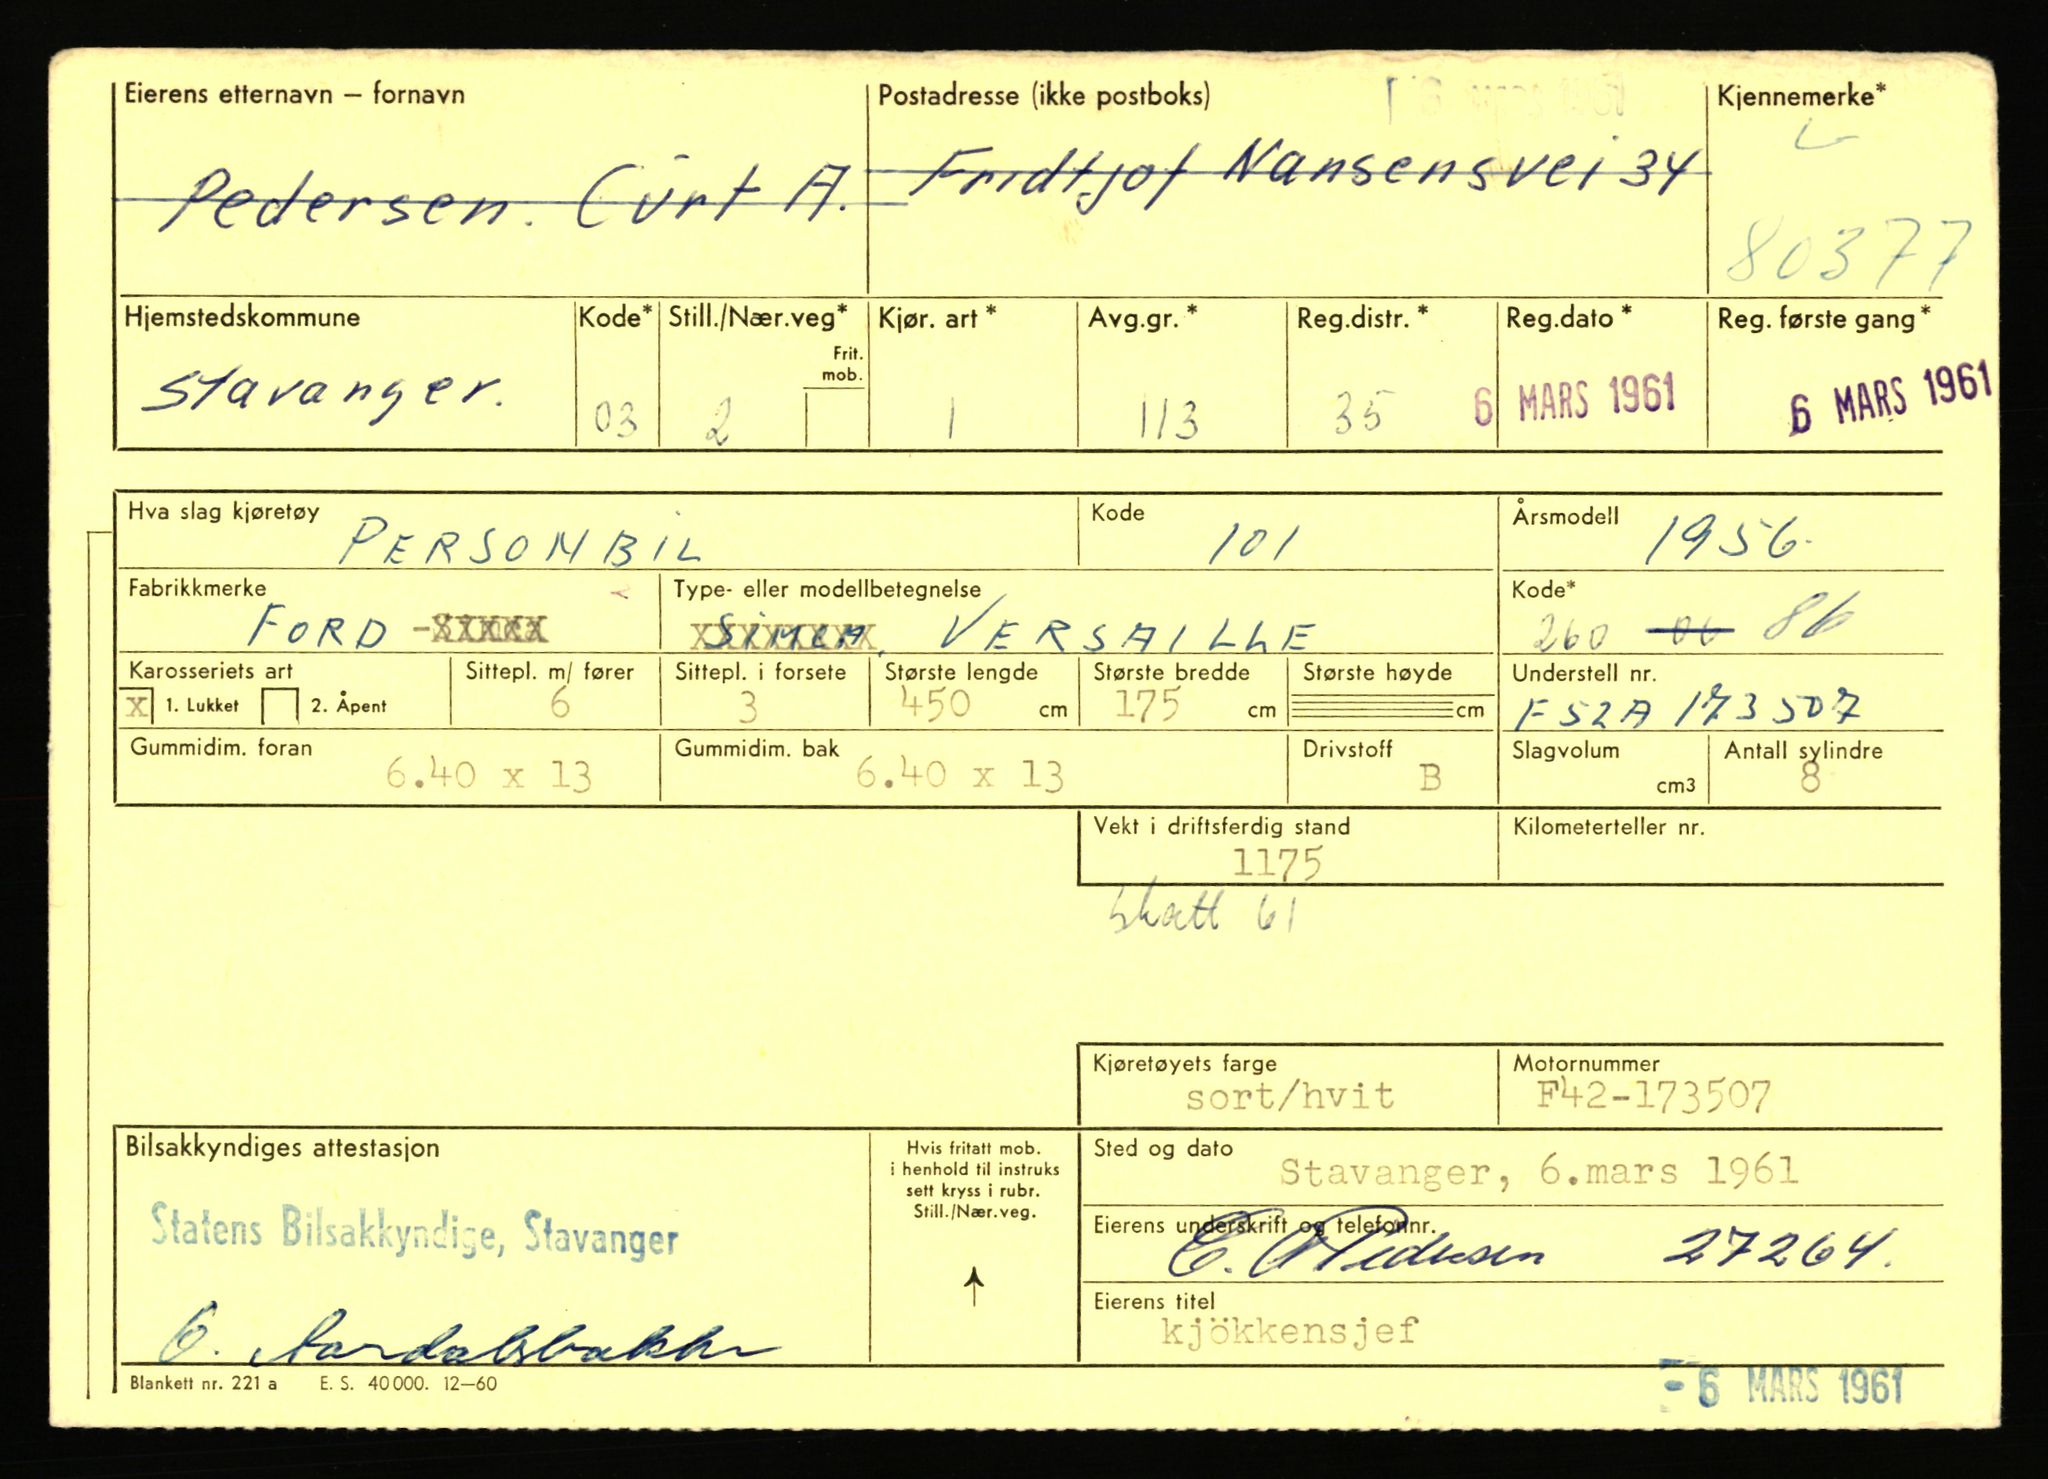 Eierens etternavn – fornavn
Pedersen. Curt A.
Postadresse (ikke postboks)
Fridtjof Nansensvei 34
Kjennemerke*
L
80377
Hjemstedskommune
Stavanger.
Kode*
03
Still./Nær.veg*
Frit. mob.
2
Kjør. art *
1
Avg.gr. *
113
Reg.distr. *
35
Reg.dato *
6 MARS 1961
Reg. første gang *
6 MARS 1961
Hva slag kjøretøy
PERSONBIL
Kode
101
Årsmodell
1956.
Fabrikkmerke
FORD
Type- eller modellbetegnelse
SIMCA, VERSAILLE
Kode*
260 06 86
Karosseriets art
X 1. Lukket 2. Åpent
Sittepl. m/ fører
6
Sittepl. i forsete
3
Største lengde
450 cm
Største bredde
175 cm
Største høyde
cm
Understell nr.
F52A 173507
Gummidim. foran
6.40 x 13
Gummidim. bak
6.40 x 13
Drivstoff
B
Slagvolum
cm3
Antall sylindre
8
Vekt i driftsferdig stand
1175
Kilometerteller nr.
skatt 61
Kjøretøyets farge
sort/hvit
Motornummer
F42-173507
Bilsakkyndiges attestasjon
Statens Bilsakkyndige, Stavanger
O. Aardalsbakke
Hvis fritatt mob.
i henhold til instruks
sett kryss i rubr.
Still./Nær.veg.
Sted og dato
Stavanger, 6.mars 1961
Eierens underskrift og telefonnr.
C. A Pedersen 27264.
Eierens titel
kjökkensjef
Blankett nr. 221 a E. S. 40 000. 12–60
-6 MARS 1961